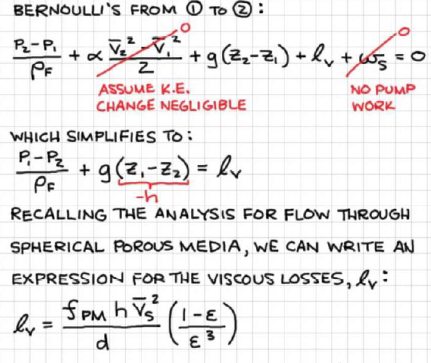 BERNOULLI'S FROM ① TO ②:
P₂-P₁/ρF + α V̄₂²-V̄₁²/2 + g(Z₂-Z₁) + ℓv + ωs = 0
0 0
ASSUME K.E.
CHANGE NEGLIGIBLE
NO PUMP
WORK
WHICH SIMPLIFIES TO:
P₁-P₂/ρF + g(Z₁-Z₂) = ℓv
-h
RECALLING THE ANALYSIS FOR FLOW THROUGH
SPHERICAL POROUS MEDIA, WE CAN WRITE AN
EXPRESSION FOR THE VISCOUS LOSSES, ℓv:
ℓv = fPM h V̄s²/d (1-ε/ε³)